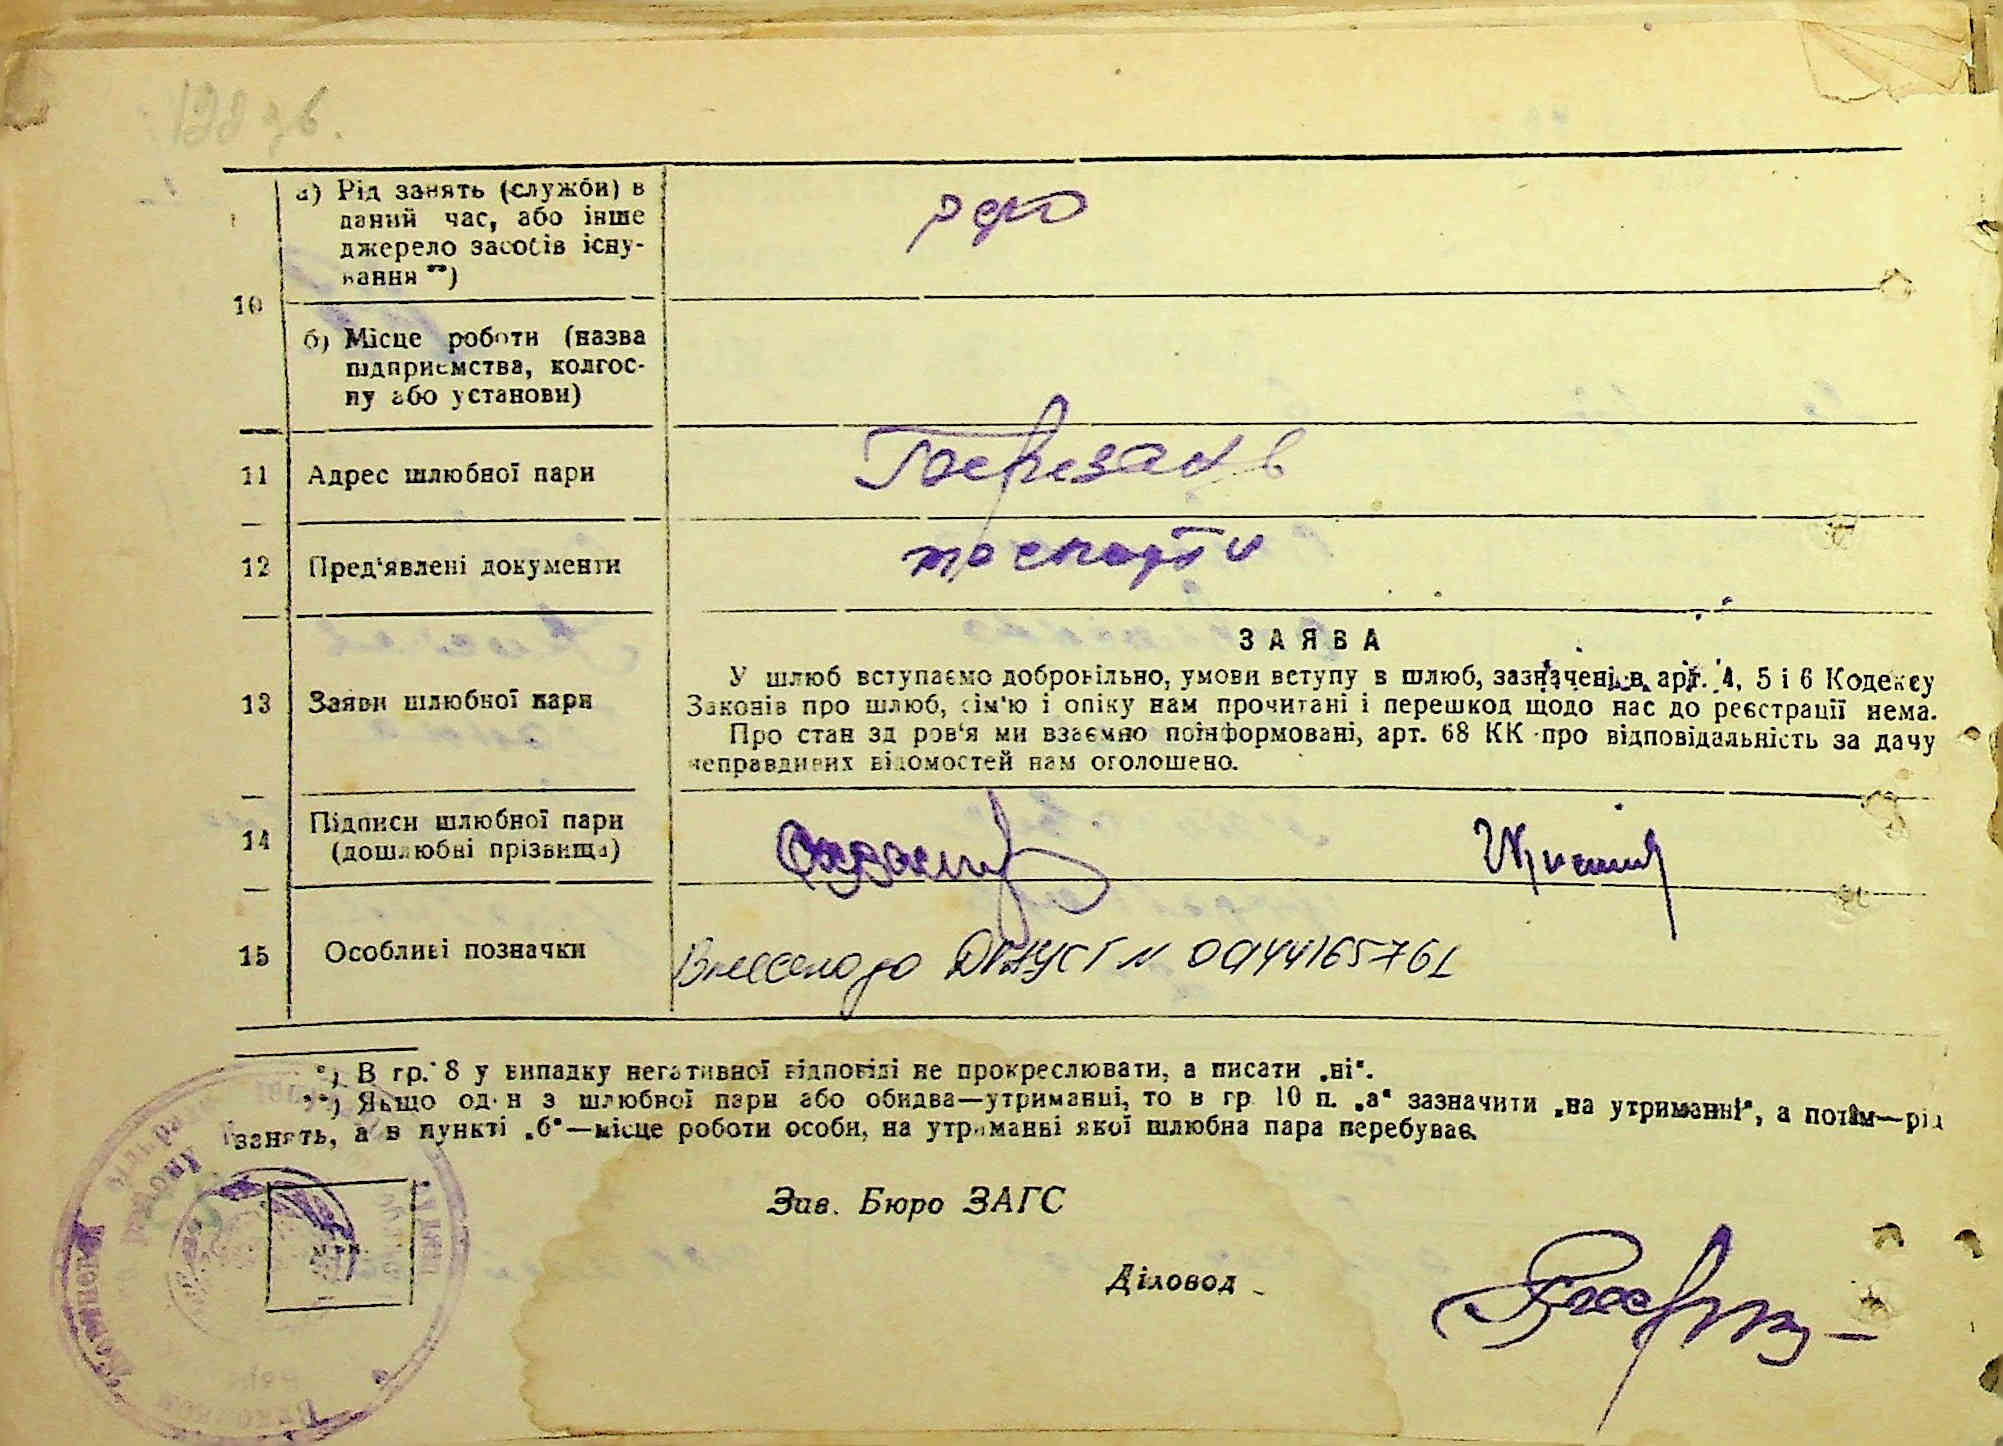 122 зв.
а) Рід занять (служби) в
даний час, або інше
джерело засобів існу-
вання **)
10
б) Місце роботи (назва
підприємства, колгос-
пу або установи)
11 Адрес шлюбної пари Березань
12 Пред'явлені документи паспорти
13 Заяви шлюбної пари
ЗАЯВА
У шлюб вступаємо добровільно, умови вступу в шлюб, зазначені в арт. 4, 5 і 6 Кодексу
Законів про шлюб, сім'ю і опіку нам прочитані і перешкод щодо нас до реєстрації нема.
Про стан здоров'я ми взаємно поінформовані, арт. 68 КК про відповідальність за дачу
неправдивих відомостей нам оголошено.
14 Підписи шлюбної пари
(дошлюбні прізвища)
15 Особливі позначки Внесено до ДРАЦСГ N 00144165761
*) В гр. 8 у випадку негативної відповіді не прокреслювати, а писати „ні".
**) Якщо один з шлюбної пари або обидва—утриманці, то в гр. 10 п. „а" зазначити „на утриманні", а потім—рід
занять, а в пункті „б"—місце роботи особи, на утриманні якої шлюбна пара перебуває.
Зав. Бюро ЗАГС
Діловод